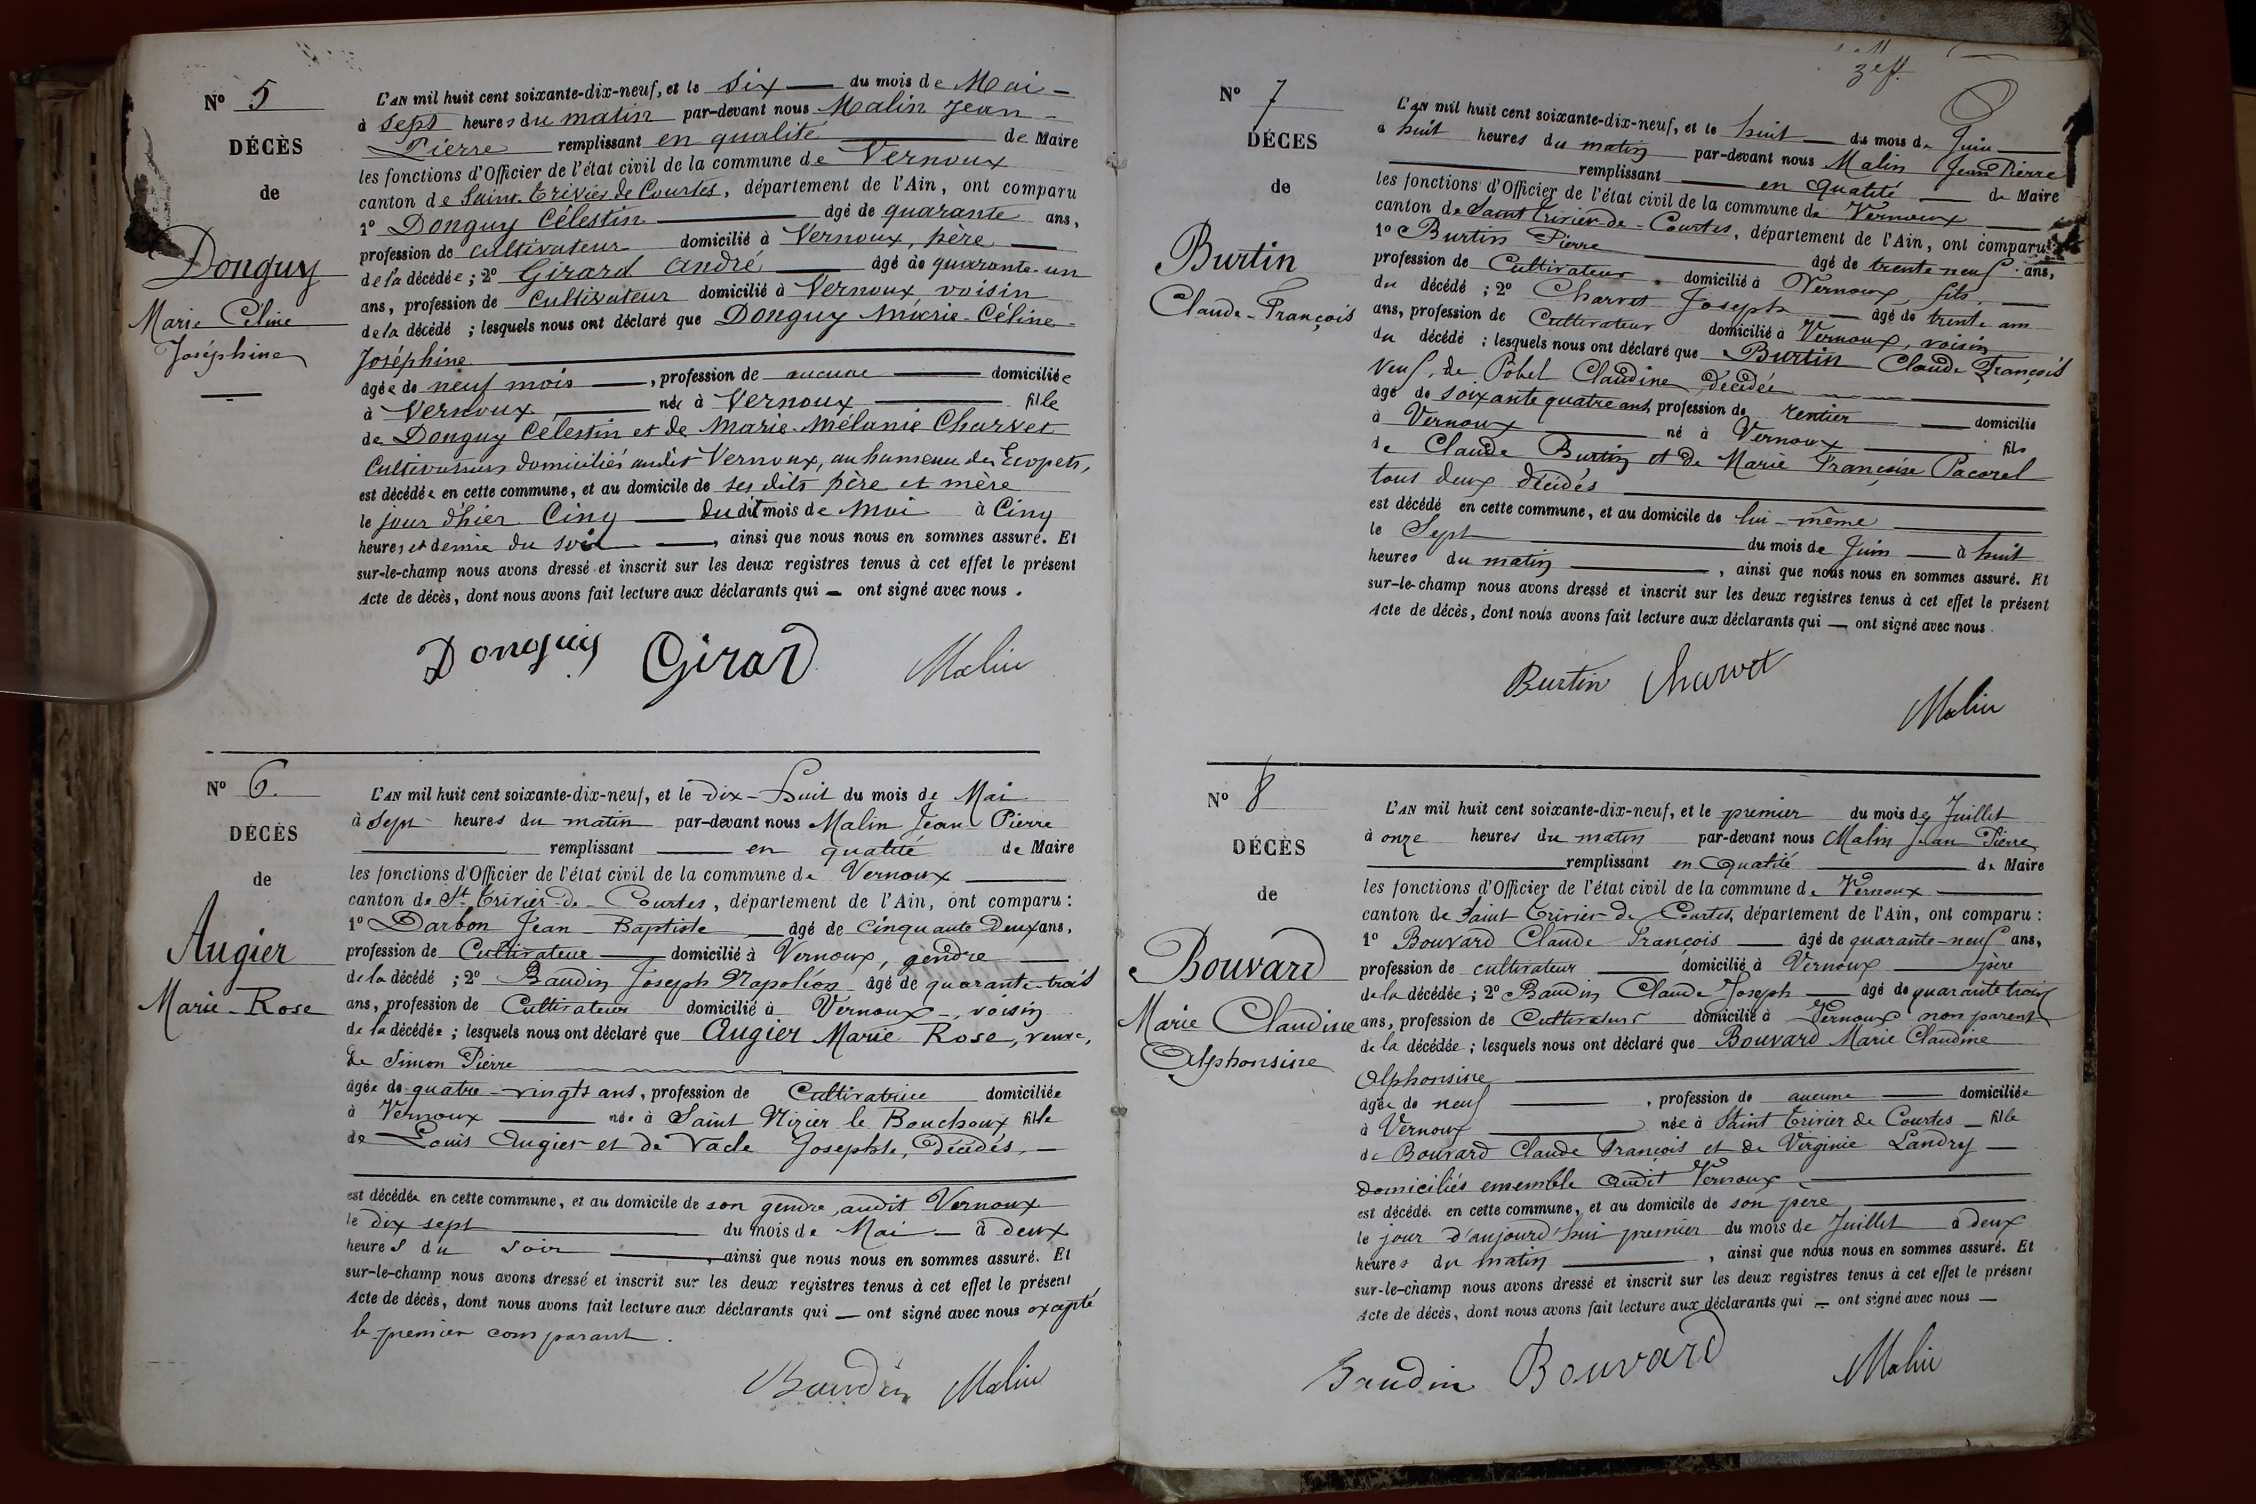 Nº 5
DÉCÈS
de
Donguy
Marie Céline
Joséphine
L'AN mil huit cent soixante-dix-neuf, et le six du mois de Mai
à sept heures du matin par-devant nous Malin Jean
Pierre remplissant en qualité de Maire
les fonctions d'Officier de l'état civil de la commune de Vernoux
canton de Saint Trivier de Courtes, département de l'Ain, ont comparu
1º Donguy Célestin âgé de quarante ans,
profession de cultivateur domicilié à Vernoux, père
de la décédée ; 2º Girard André âgé de quarante-un
ans, profession de cultivateur domicilié à Vernoux voisin
de la décédé ; lesquels nous ont déclaré que Donguy Marie-Céline
Joséphine
âgée de neuf mois, profession de aucune domiciliée
à Vernoux née à Vernoux fille
de Donguy Célestin et de Marie-Mélanie Charvet
Cultivateurs domiciliés audit Vernoux, au hameau des Ecopets,
est décédée en cette commune, et au domicile de ses dits père et mère
le jour d'hier Cinq du dit mois de Mai à Cinq
heures et demie du soir, ainsi que nous nous en sommes assuré. Et
sur-le-champ nous avons dressé et inscrit sur les deux registres tenus à cet effet le présent
Acte de décès, dont nous avons fait lecture aux déclarants qui — ont signé avec nous.
Donguy Girard Malin
Nº 6.
DÉCÈS
de
Augier
Marie-Rose
L'AN mil huit cent soixante-dix-neuf, et le dix-huit du mois de Mai
à sept heures du matin par-devant nous Malin Jean Pierre
remplissant en qualité de Maire
les fonctions d'Officier de l'état civil de la commune de Vernoux
canton de St Trivier-de-Courtes, département de l'Ain, ont comparu :
1º Darbon Jean-Baptiste âgé de cinquante deux ans,
profession de Cultivateur domicilié à Vernoux, gendre
de la décédé ; 2º Baudin Joseph Napoléon âgé de quarante-trois
ans, profession de Cultivateur domicilié à Vernoux, voisin
de la décédée ; lesquels nous ont déclaré que Augier Marie Rose, veuve,
de Simon Pierre
âgée de quatre-vingts ans, profession de Cultivatrice domiciliée
à Vernoux née à Saint Nizier le Bouchoux fille
de Louis Augier et de Vacle Josephte, Décédés,
est décédée en cette commune, et au domicile de son gendre, audit Vernoux
le dix sept du mois de Mai à deux
heures du soir, ainsi que nous nous en sommes assuré. Et
sur-le-champ nous avons dressé et inscrit sur les deux registres tenus à cet effet le présent
Acte de décès, dont nous avons fait lecture aux déclarants qui — ont signé avec nous excepté
le premier comparant.
Baudin Malin
Nº 7
DÉCES
de
Burtin
Claude-François
L'AN mil huit cent soixante-dix-neuf, et le huit du mois de Juin
à huit heures du matin par-devant nous Malin Jean Pierre
remplissant en qualité de Maire
les fonctions d'Officier de l'état civil de la commune de Vernoux
canton de Saint Trivier-de-Courtes, département de l'Ain, ont comparu
1º Burtin Pierre âgé de trente neuf ans,
profession de Cultivateur domicilié à Vernoux, fils
du décédé ; 2º Charvet Joseph âgé de trente ans
ans, profession de Cultivateur domicilié à Vernoux, voisin
du décédé ; lesquels nous ont déclaré que Burtin Claude François
veuf, de Pobel Claudine décédée
âgé de soixante quatre ans, profession de rentier domicilié
à Vernoux né à Vernoux fils
de Claude Burtin et de Marie Françoise Pacorel
tous deux décédés
est décédé en cette commune, et au domicile de lui-même
le Sept du mois de Juin à huit
heures du matin, ainsi que nous nous en sommes assuré. Et
sur-le-champ nous avons dressé et inscrit sur les deux registres tenus à cet effet le présent
Acte de décès, dont nous avons fait lecture aux déclarants qui — ont signé avec nous.
Burtin Charvet
Malin
Nº 8
DÉCÈS
de
Bouvard
Marie Claudine
Alphonsine
L'AN mil huit cent soixante-dix-neuf, et le premier du mois de Juillet
à onze heures du matin par-devant nous Malin Jean Pierre
remplissant en qualité de Maire
les fonctions d'Officier de l'état civil de la commune de Vernoux
canton de Saint Trivier-de-Courtes, département de l'Ain, ont comparu :
1º Bouvard Claude François âgé de quarante-neuf ans,
profession de cultivateur domicilié à Vernoux père
de la décédée ; 2º Baudin Claude Joseph âgé de quarante trois
ans, profession de Cultivateur domicilié à Vernoux non parent
de la décédée ; lesquels nous ont déclaré que Bouvard Marie Claudine
Alphonsine
âgée de neuf, profession de aucune domiciliée
à Vernoux née à Saint Trivier de Courtes fille
de Bouvard Claude François et de Virginie Landry
domiciliés ensemble audit Vernoux
est décédé en cette commune, et au domicile de son père
le jour d'aujourd'hui premier du mois de Juillet à deux
heures du matin, ainsi que nous nous en sommes assuré. Et
sur-le-champ nous avons dressé et inscrit sur les deux registres tenus à cet effet le présent
Acte de décès, dont nous avons fait lecture aux déclarants qui — ont signé avec nous —
Baudin Bouvard Malin